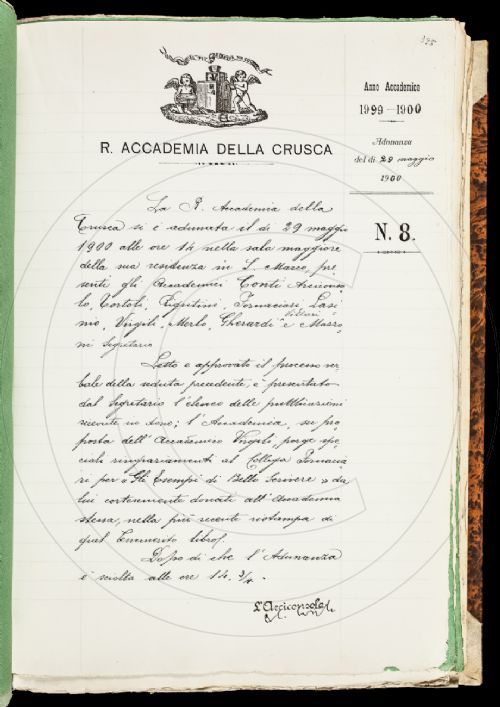 195
R. ACCADEMIA DELLA CRUSCA
Anno Accademico
1999-1900
Adunanza
del dì 29 maggio
1900
N. 8.
La R. Accademia della
Crusca si è adunata il dì 29 maggio
1900 alle ore 14 nella sala maggiore
della sua residenza in S. Marco, pre,
senti gli Accademici Conti Arciconso,
lo, Tortoli, Rigutini, Fornaciari, Lasi,
nio, Virgili, Merlo, Gherardi, Villari e Mazzo,
ni Segretario
Letto e approvato il processo ver,
bale della seduta precedente, è presentato
dal Segretario l'elenco delle pubblicazioni
ricevute in dono; l'Accademia, su pro,
posta dell'Accademico Virgili, porge spe,
ciali ringraziamenti al Collega Fornacia,
ri per "Gli Esempi di Bello Scrivere" da
lui cortesemente donati all'Accademia
stessa, nella più recente ristampa di
quel benemerito libro.
Dopo di che l'Adunanza
è sciolta alle ore 14. 3/4.
L'Arciconsolo